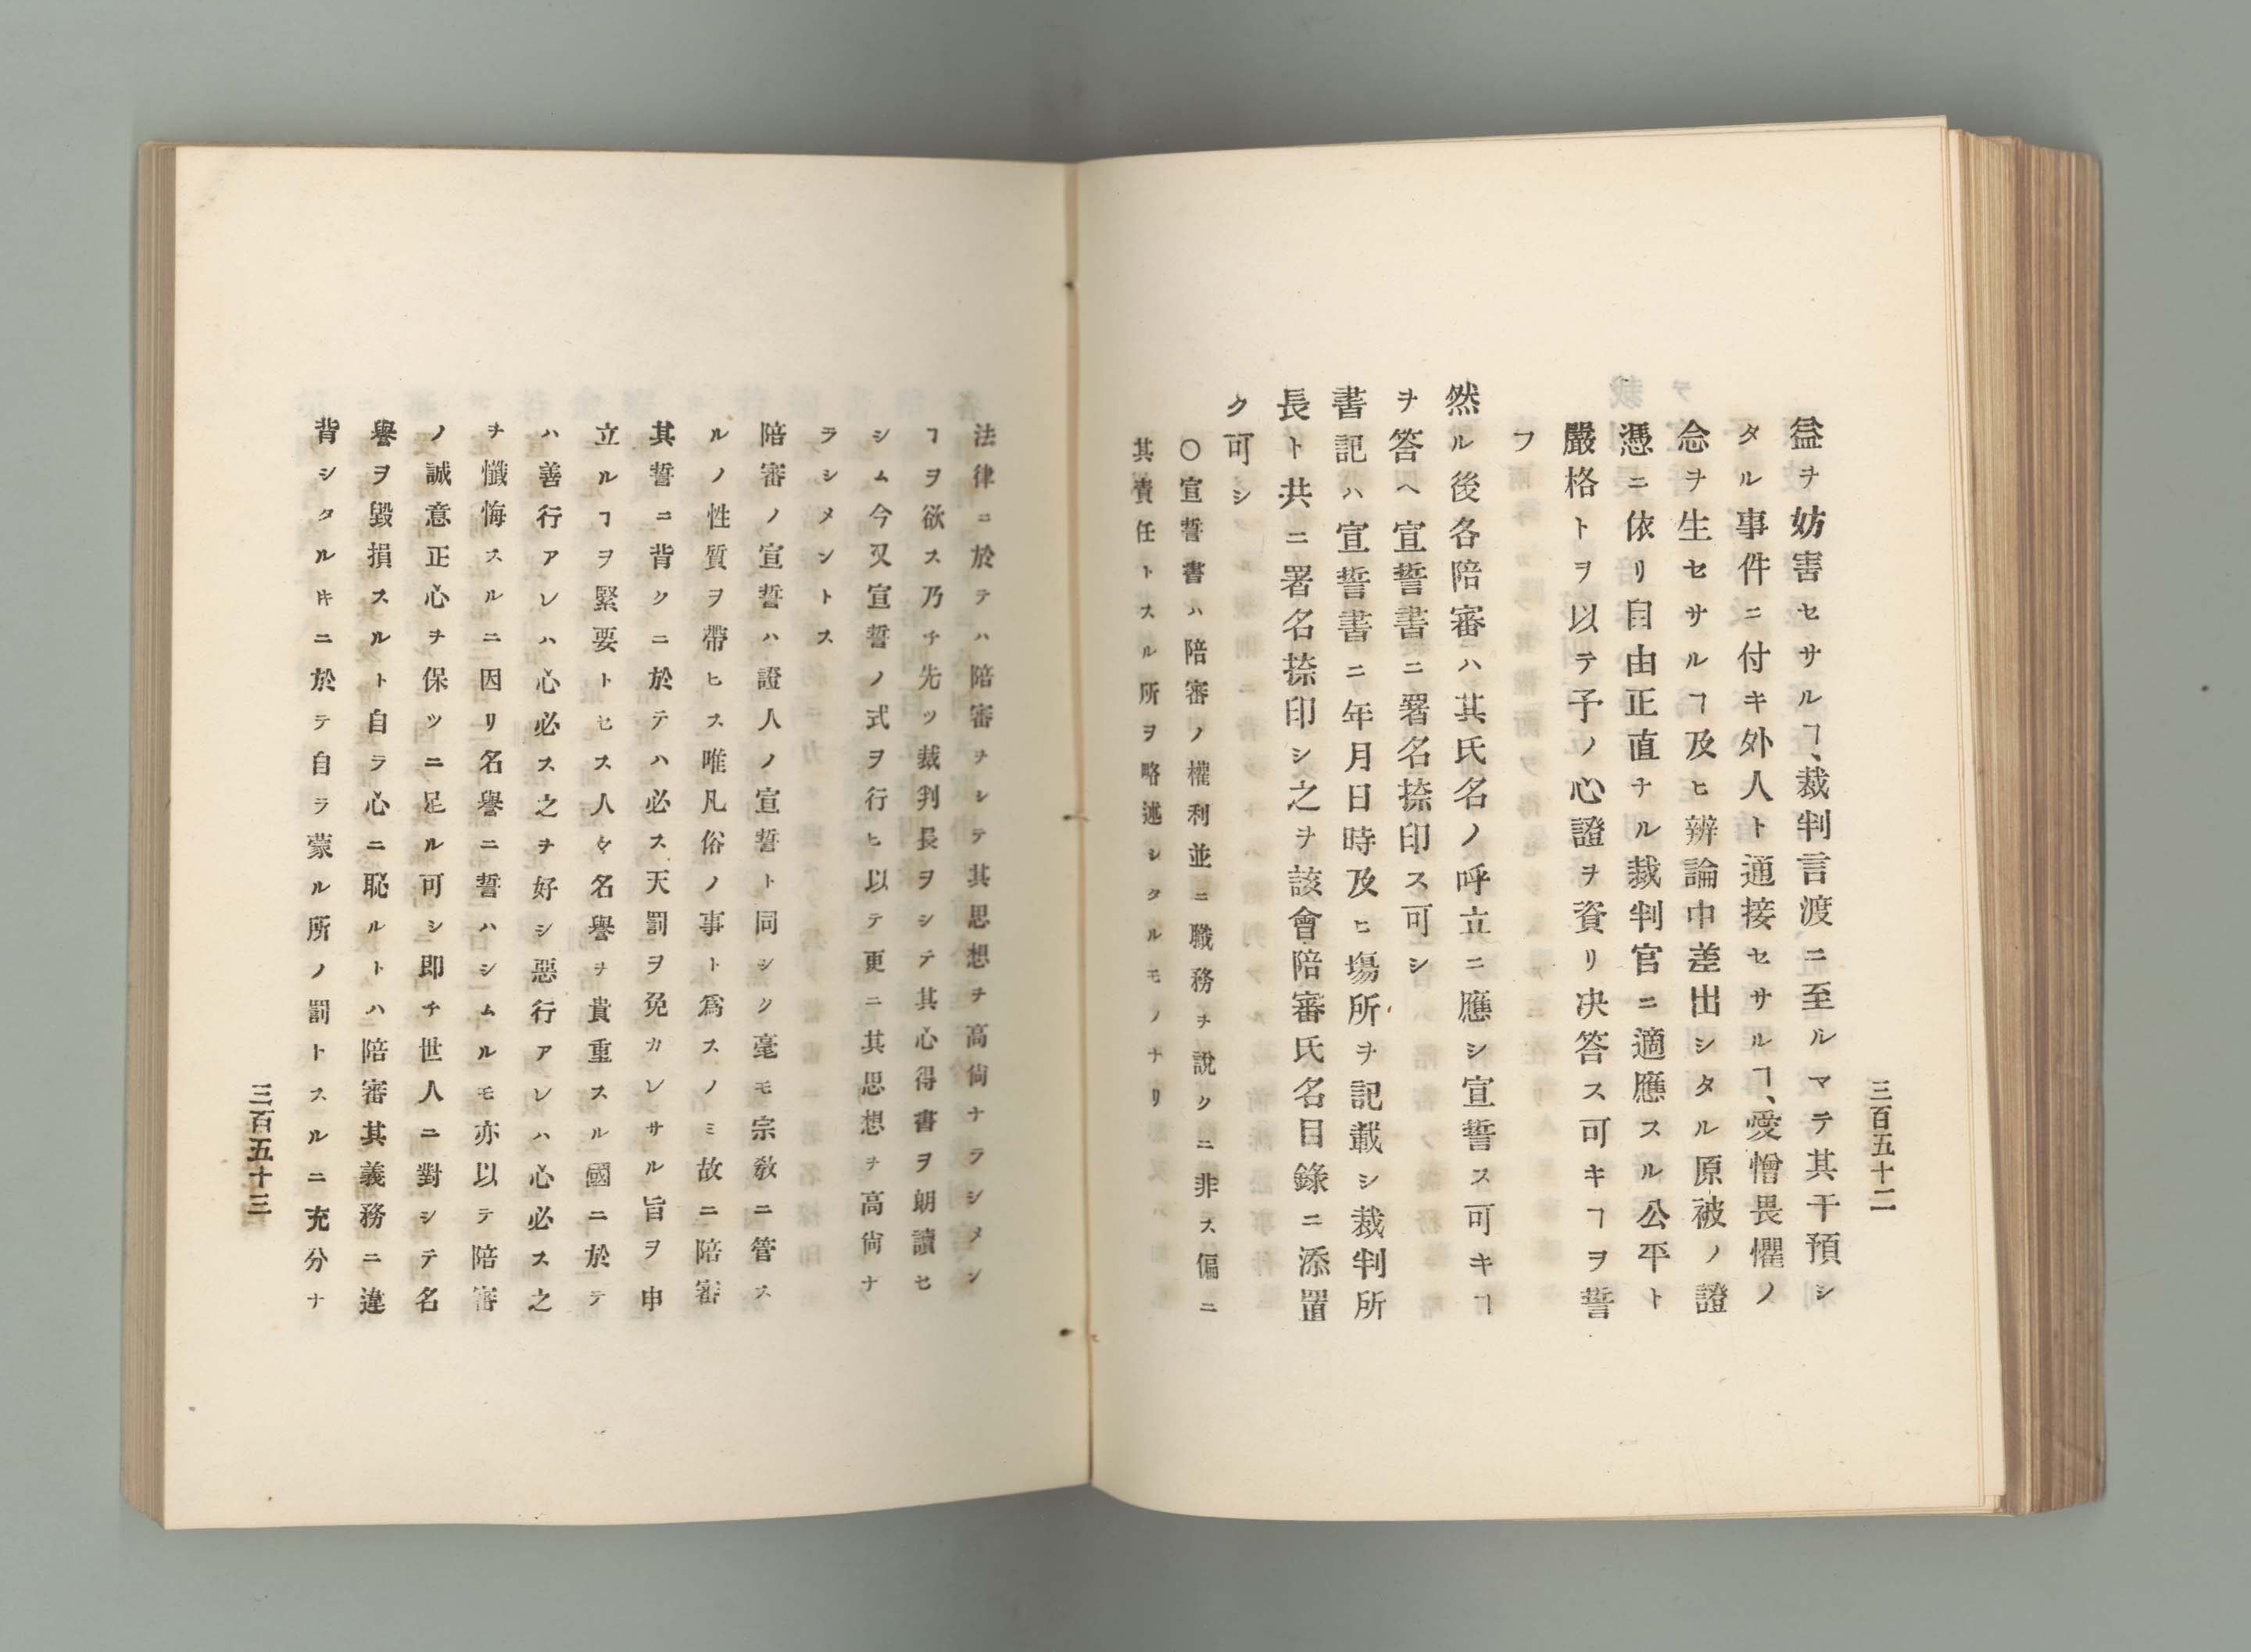 三百五十二
益ヲ妨害セサルヿ、裁判言渡ニ至ルマテ其干預シ
タル事件ニ付キ外人ト通接セサルヿ、愛憎畏懼ノ
念ヲ生セサルヿ及ヒ辨論中差出シタル原被ノ證
憑ニ依リ自由正直ナル裁判官ニ適應スル公平ト
嚴格トヲ以テ予ノ心證ヲ資リ决答ス可キヿヲ誓
フ
然ル後各陪審ハ其氏名ノ呼立ニ應シ宣誓ス可キヿ
ヲ答ヘ宣誓書ニ署名捺印ス可シ
書記ハ宣誓書ニ年月日時及ヒ塲所ヲ記載シ裁判所
長ト共ニ署名捺印シ之ヲ該會陪審氏名目錄ニ添置
ク可シ
〇宣誓書ハ陪審ノ權利並ニ職務ヲ說クニ非ス偏ニ
其責任トスル所ヲ略述シタルモノナリ
法律ニ於テハ陪審ヲシテ其思想ヲ高尙ナラシメン
ヿヲ欲ス乃チ先ツ裁判長ヲシテ其心得書ヲ朗讀セ
シム今又宣誓ノ式ヲ行ヒ以テ更ニ其思想ヲ高尙ナ
ラシメントス
陪審ノ宣誓ハ證人ノ宣誓ト同シク毫モ宗敎ニ管ス
ルノ性質ヲ帶ヒス唯凡俗ノ事ト爲スノミ故ニ陪審
其誓ニ背クニ於テハ必ス天罰ヲ免カレサル旨ヲ申
立ルヿヲ緊要トセス人々名譽ヲ貴重スル國ニ於テ
ハ善行アレハ心必ス之ヲ好シ惡行アレハ心必ス之
ヲ懺悔スルニ因リ名譽ニ誓ハシムルモ亦以テ陪審
ノ誠意正心ヲ保ツニ足ル可シ即チ世人ニ對シテ名
譽ヲ毀損スルト自ラ心ニ恥ルトハ陪審其義務ニ違
背シタルトキニ於テ自ラ蒙ル所ノ罰トスルニ充分ナ
三百五十三